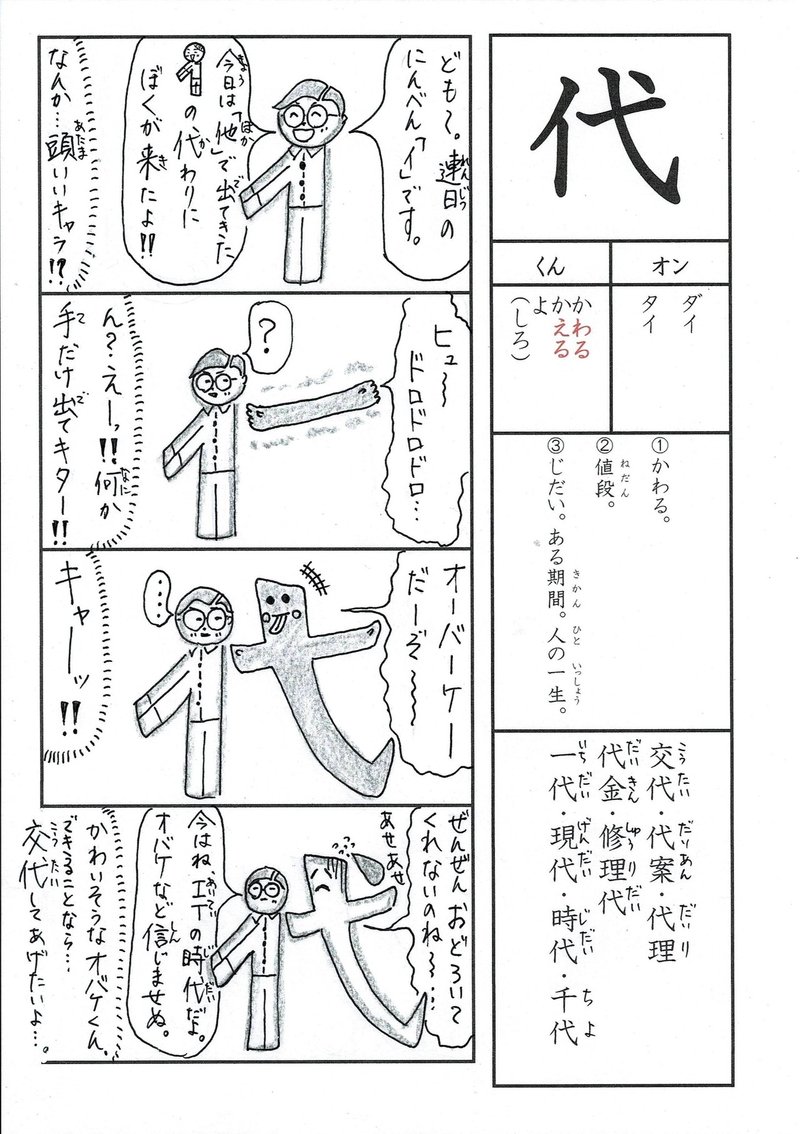 代
オン
くん
ダイ
タイ
かわる
かえる
よ
(しろ)
①かわる。
②値段。
ねだん
③じだい。ある期間。人の一生。
きかん ひと いっしょう
交代・代案・代理
こうたい だいあん だいり
代金・修理代
だいきん しゅうりだい
一代・現代・時代・千代
いちだい げんだい じだい ちよ
ども〜。連日の
れんじつ
にんべん「イ」です。
今日は「他」で出てきた
きょう ほか で
の代わりに
か
ぼくが来たよ!!
き
なんか…頭いいキャラ!?
あたま
ヒュ〜
ドロドロドロ…
?
ん?えーっ!!何か
なに
手だけ出てキター!!
て で
オーバーケー
だーぞ〜
…
キャーッ!!
ぜんぜんおどろいて
くれないのね〜…
あせあせ
今はね、ITの時代だよ。
いま アイティー じだい
オバケなど信じませぬ。
しん
かわいそうなオバケくん。
できることなら…
交代してあげたいよ…。
こうたい